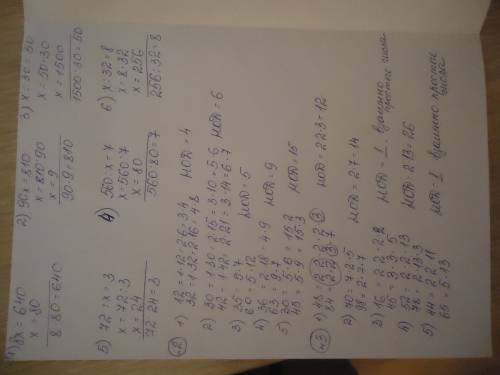 1) 8x = 640
x = 80
8·80=640
2) 90x = 810
x = 810:90
x = 9
90·9=810
3) x:30=50
x = 50·30
x = 1500
1500:30=50
5) 72:x=3
x = 72:3
x = 24
72:24=3
4) 560:x=7
x=560:7
x = 80
560:80=7
6) x:32=8
x = 8·32
x = 256
256:32=8
№2
1) 12=1·12=2·6=3·4
32=1·32=2·16=4·8 НОД = 4
2) 30=1·30=2·15=3·10=5·6
42=1·42=2·21=3·14=6·7 НОД = 6
3) 35=5·7
60=5·12 НОД=5
4) 36=2·18=4·9
63=9·7 НОД=9
5) 30=5·6=15·2
45=5·9=15·3 НОД=15
№3
1) 48=2·2·2·2·3
84=2·2·3·7 НОД=2·2·3=12
2) 70=7·2·5
98=2·7·7 НОД=2·7=14
3) 16=2·2·2·2
45=3·3·5 НОД=1. Взаимно простые числа
4) 52=2·2·13
78=2·13·3 НОД=2·13=26
5) 44=2·2·11
65=5·13 НОД=1 Взаимно простые числа